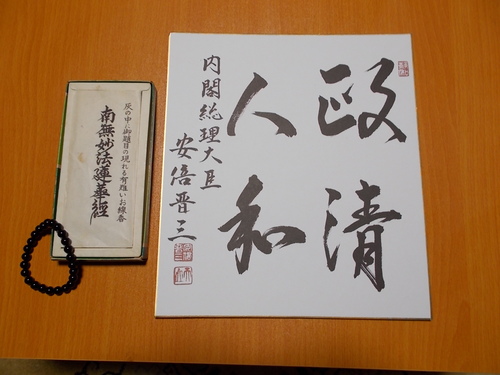 灰の中に御題目の現れる有難いお線香
南無妙法蓮華經
政清
人和
内閣総理大臣
安倍晋三